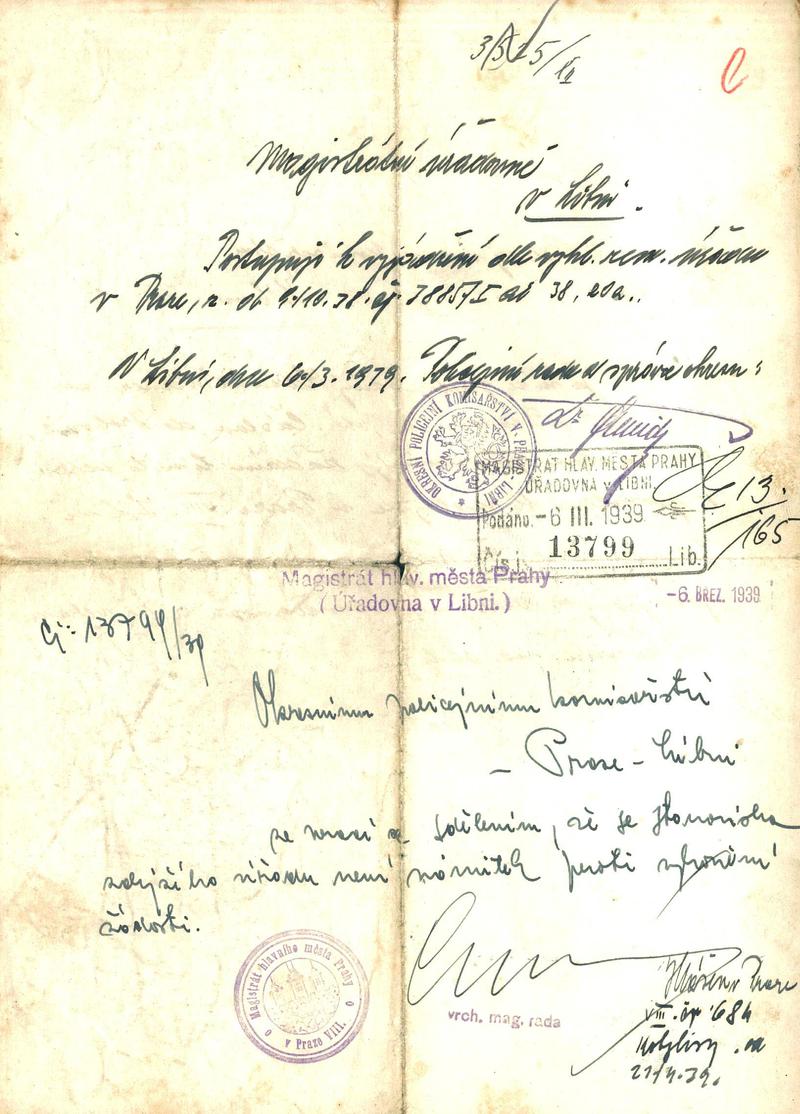 Magistrátní úřadovně
v Libni.
Postupuji k vyjádření dle vyhl. zem. úřadu
v Praze, z. d. 9/10.38. čj. 38857/I ai 38.
V Libni, dne 6./3. 1939. Policejní rada a správce okresu:
Dr.
OKRESNÍ POLICEJNÍ KOMISAŘSTVÍ V PRAZE - LIBNI
MAGISTRÁT HLAV. MĚSTA PRAHY
ÚŘADOVNA v LIBNI.
Podáno: -6 III. 1939
Čís. j. 13799 Lib.
13.
165
Magistrát hlav. města Prahy
(Úřadovna v Libni.)
-6. BŘEZ. 1939
Čj: 13799/39
Okresnímu policejnímu komisařství
v Praze - Libni
se vrací se sdělením, že se stanoviska
zdejšího úřadu není námitek proti vyhovění
žádosti.
Magistrát hlavního města Prahy
v Praze VIII.
vrch. mag. rada
Hlášen v Praze
VIII. čp. 684
21/4.39.